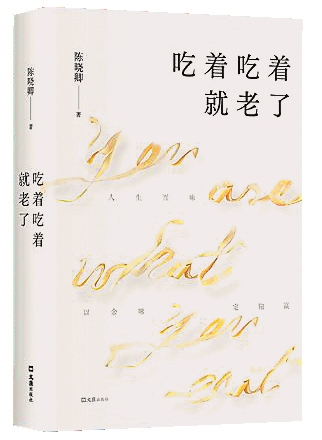 陈晓卿
著
吃着吃着
就老了
文汇出版社
吃着吃着
就老了
陈晓卿
著
You are
人生百味
what
以余味
定
you
eat
文汇出版社